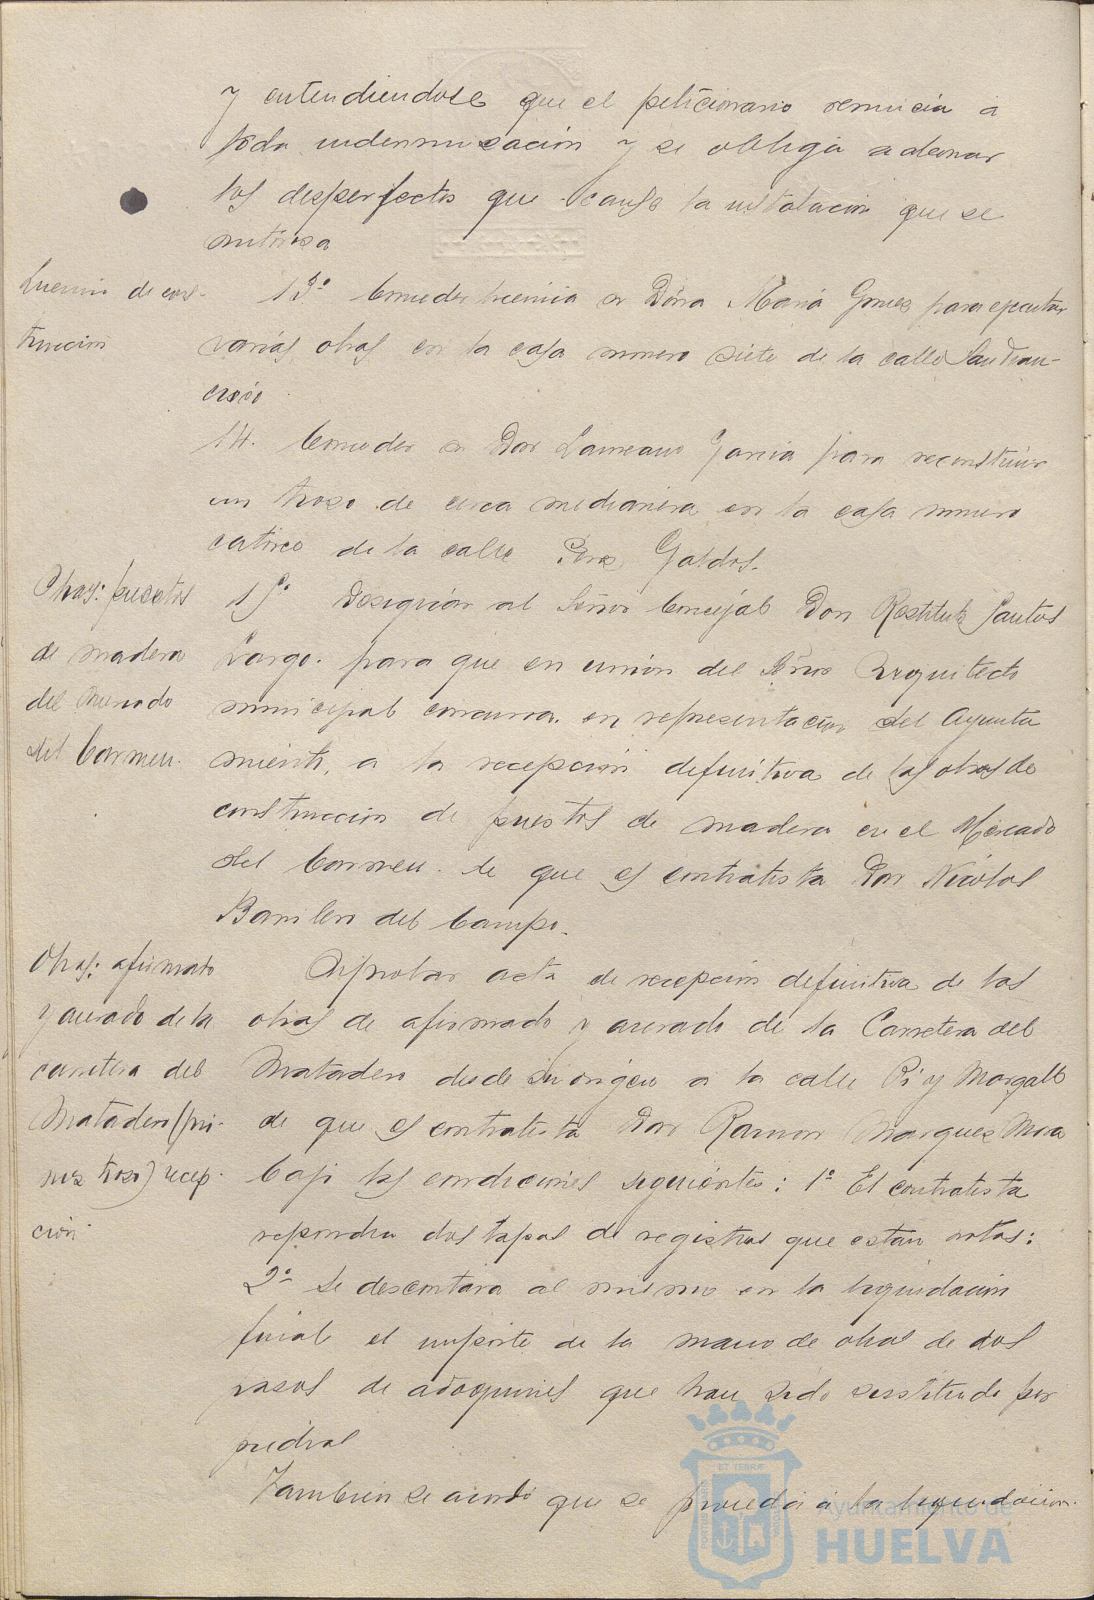 y entendiendose que el peticionario renuncia a
toda indemnización y se obliga a abonar
los desperfectos que cause la instalacion que se
autoriza
Licencia de cons-
truccion
13º Conceder licencia a Doña Maria Gomez para ejecutar
varias obras en la casa numero siete de la calle San Fran-
cisco
14. Conceder a Don Laureano Garcia para reconstruir
un trozo de cerca medianera en la casa numero
catorce de la calle Perez Galdos.
Obras: puestos
de madera
del Mercado
del Carmen.
15º Designar al Señor Concejal Don Restituto Santos
Largo. para que en unión del Señor Arquitecto
municipal concurra. en representacion del Ayunta
miento, a la recepción definitiva de las obras de
construccion de puestos de madera en el Mercado
del Carmen. de que es contratista Don Nicolas
del Campo.
Obras: afirmado
y acerado de la
carretera del
Matadero (pri-
mer trozo) recep-
ción.
Aprobar acta de recepción definitiva de las
obras de afirmado y acerado de la Carretera del
Matadero desde su origen a la calle Pi y Margall
de que es contratista Don Ramon Marquez Mora
bajo las condiciones siguientes: 1º El contratista
repondra dos tapas de registros que estan rotas:
2º Se descontara al mismo en la liquidacion
final el importe de la mano de obra de dos
vasos de adoquines que han sido sustituido por
piedras
Tambien se acordó que se proceda a la liquidacion.
Ayuntamiento de
HUELVA